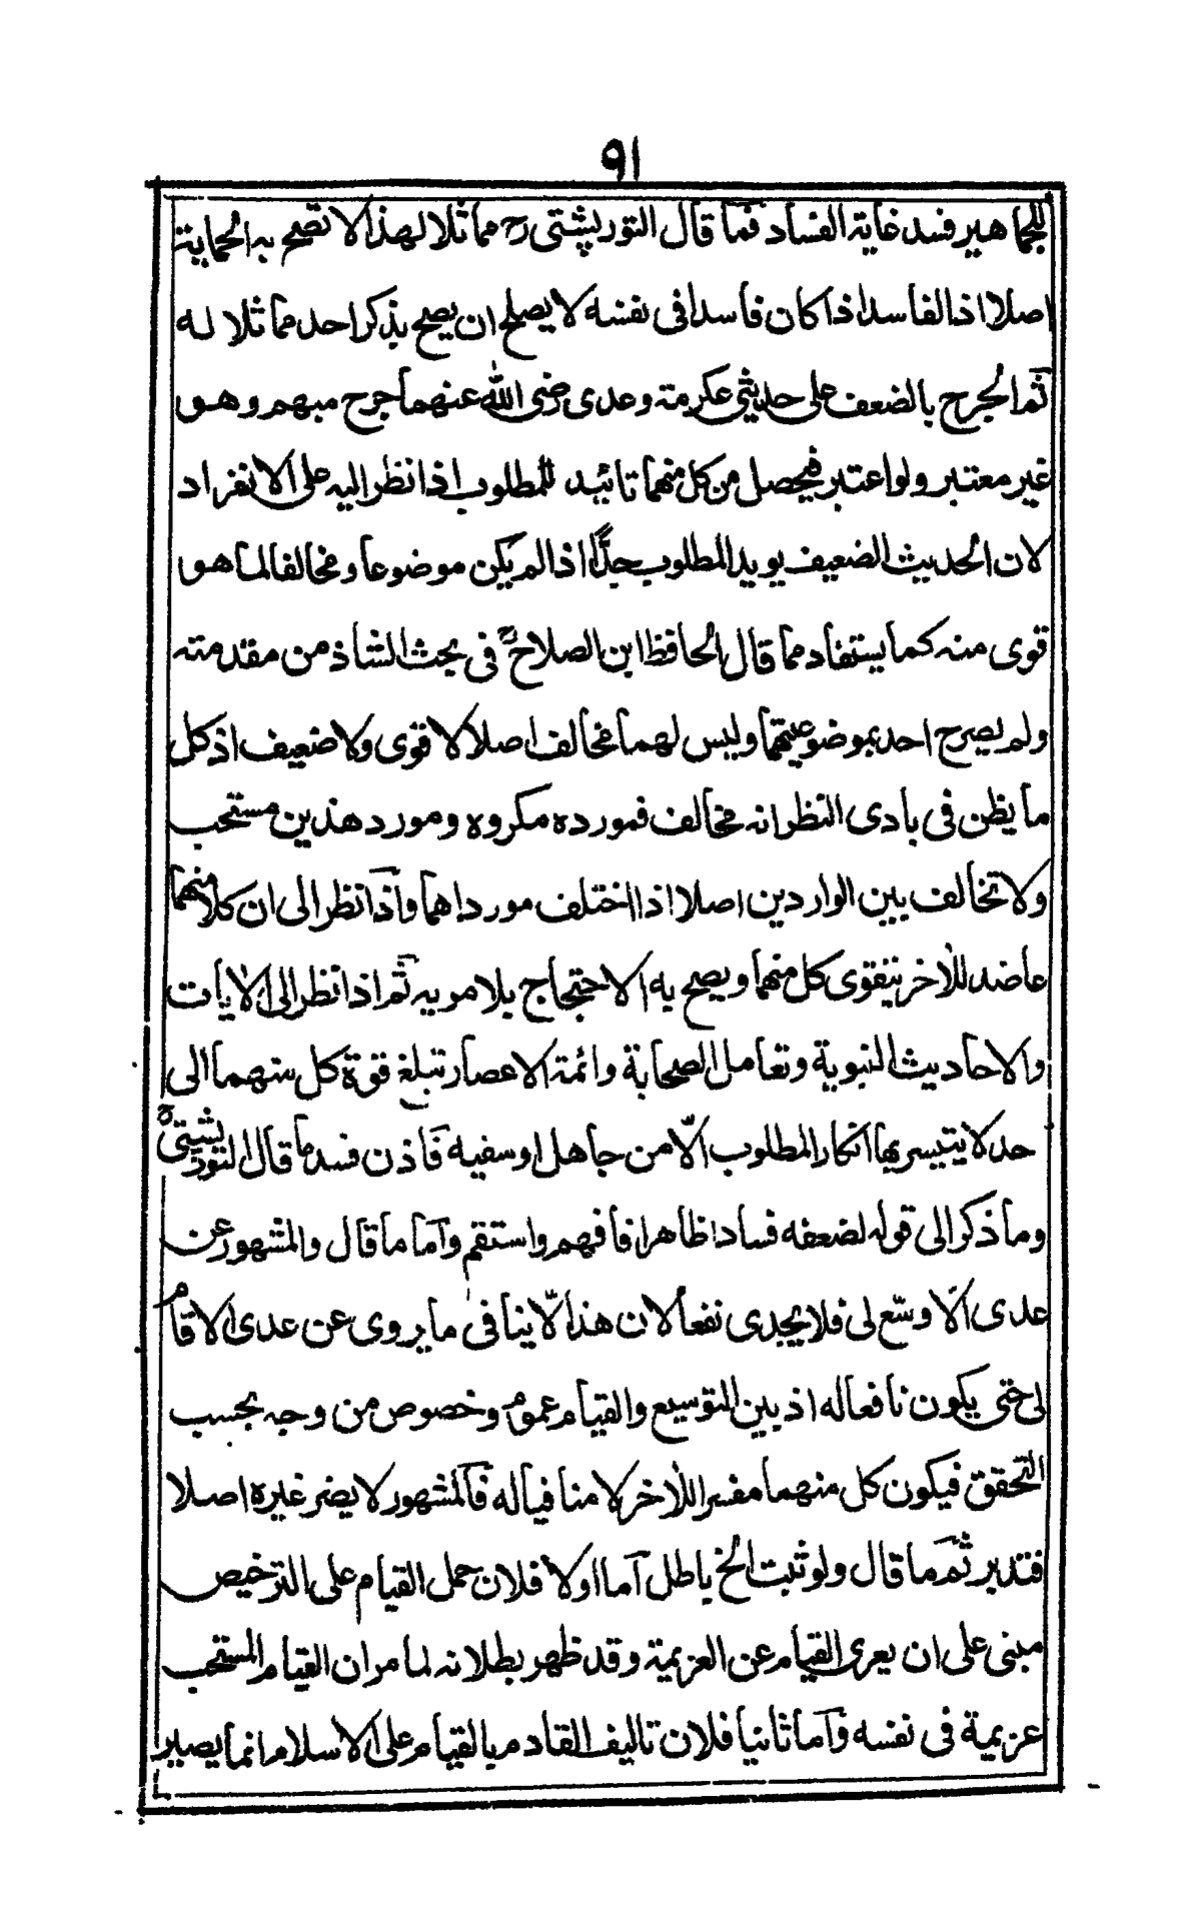 ٩١
للجماهير فسد غاية الفساد فما قال التور پشتی رح مماثلا لهذا لا تصح به الحماية
اصلا اذ الفاسد اذا كان فاسدا فى نفسه لا يصلح ان يصح بذكر احد مماثلا له
ثم الجرح بالضعف على حديثى عكرمة وعدى رضى الله عنهما جرح مبهم وهو
غير معتبر ولو اعتبر فيحصل من كل منهما تائيد للمطلوب اذا نظر اليه على الانفراد
لان الحديث الضعيف يويد المطلوب جدًّا اذا لم يكن موضوعا ومخالفا لما هو
قوى منه كما يستفاد مما قال الحافظ ابن الصلاح رح فى بحث الشاذ من مقدمته
ولم يصرح احد بموضوعيتهما وليس لهما مخالف اصلا لا قوى ولا ضعيف اذ كل
ما يظن فى بادى النظر انه مخالف فمورده مكروه ومورد هذين مستحب
ولا تخالف بين الواردين اصلا اذا اختلف مورداهما وآذا نظر الى ان كلا منهما
عاضد للآخر يتقوى كل منهما ويصح به الاحتجاج بلا مريه ثم اذا نظر الى الآيات
والاحاديث النبوية وتعامل الصحابة وائمة الاعصار تبلغ قوة كل منهما الى
حد لا يتيسر بها انكار المطلوب الّا من جاهل او سفيه فاذن فسد ما قال التور پشتی رح
وما ذكر الى قوله لضعفه فسادا ظاهرا فافهم واستقم وآما ما قال والمشهور عن
عدى الّا وسّع لى فلا يجدى نفعا لان هذا لا ينافى ما يروى عن عدى الا قام
لى حتى يكون نافعا له اذ بين التوسيع والقيام عموم وخصوص من وجه بحسب
التحقق فيكون كل منهما مفسرا للآخر لا منافيا له فالمشهور لا يضر غيره اصلا
فتدبر ثم ما قال ولو ثبت الخ باطل آما اولا فلان حمل القيام على الترخيص
مبنى على ان يعرى القيام عن العزيمة وقد ظهر بطلانه لما مر ان القيام المستحب
عزيمة فى نفسه وآما ثانيا فلان تاليف القادم بالقيام على الاسلام انما يصير